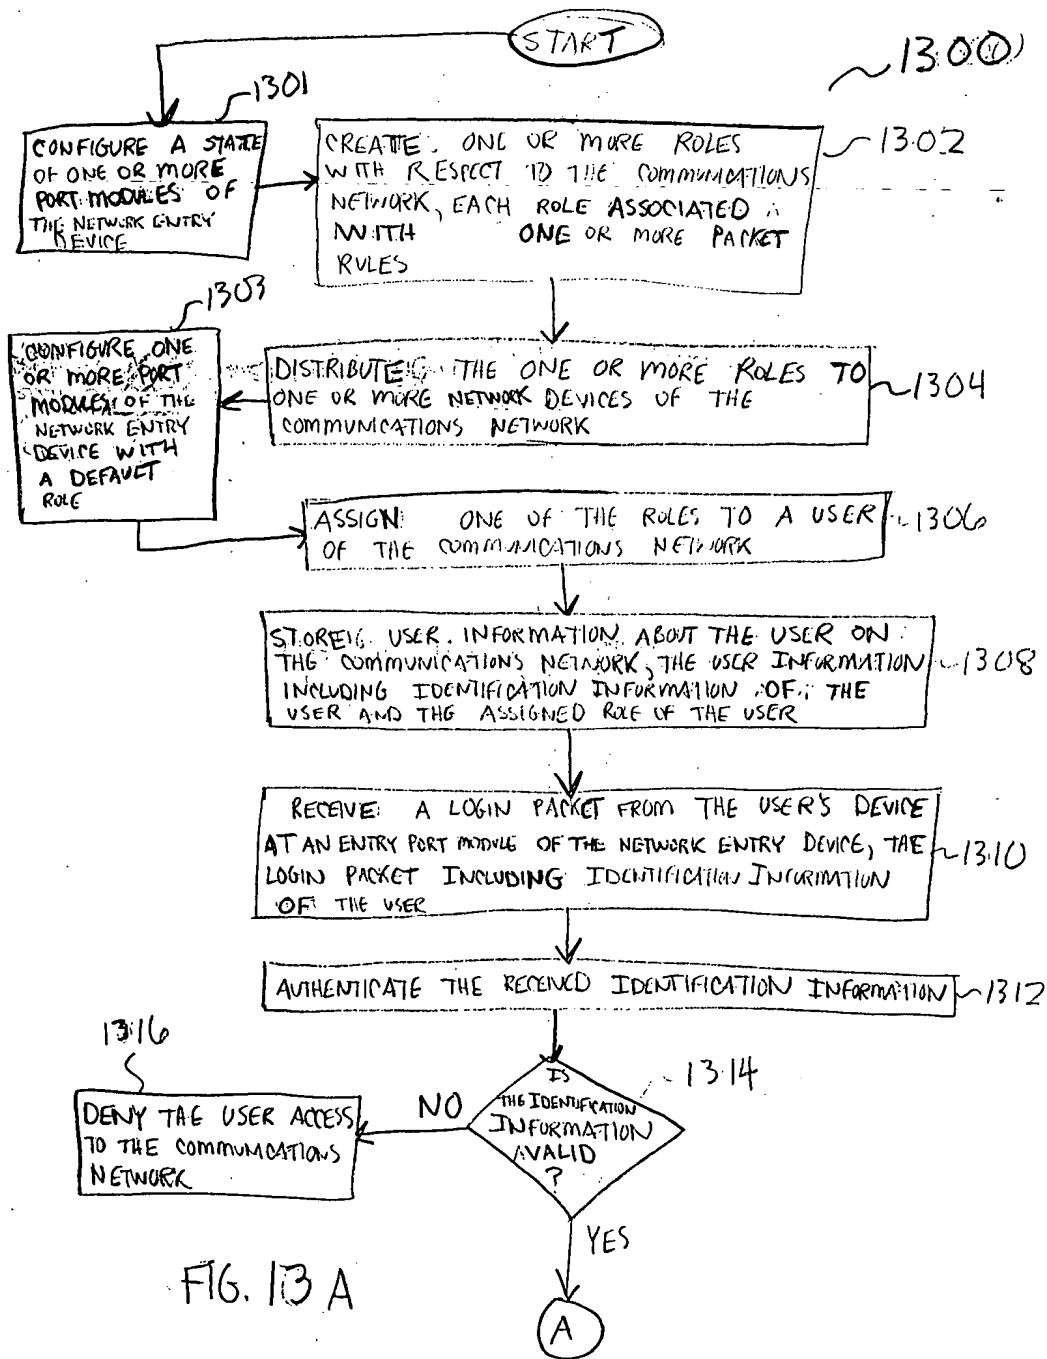 START
1300
1301
CONFIGURE A STATE
OF ONE OR MORE
PORT MODULES OF
THE NETWORK ENTRY
DEVICE
CREATE: ONE OR MORE ROLES
WITH RESPECT TO THE COMMUNICATIONS
NETWORK, EACH ROLE ASSOCIATED
WITH ONE OR MORE PACKET
RULES
1302
1303
CONFIGURE ONE
OR MORE PORT
MODULES OF THE
NETWORK ENTRY
DEVICE WITH
A DEFAULT
ROLE
DISTRIBUTE THE ONE OR MORE ROLES TO
ONE OR MORE NETWORK DEVICES OF THE
COMMUNICATIONS NETWORK
1304
ASSIGN: ONE OF THE ROLES TO A USER
OF THE COMMUNICATIONS NETWORK
1306
STORE USER INFORMATION ABOUT THE USER ON
THE COMMUNICATIONS NETWORK, THE USER INFORMATION
INCLUDING IDENTIFICATION INFORMATION OF THE
USER AND THE ASSIGNED ROLE OF THE USER
1308
RECEIVE: A LOGIN PACKET FROM THE USER'S DEVICE
AT AN ENTRY PORT MODULE OF THE NETWORK ENTRY DEVICE, THE
LOGIN PACKET INCLUDING IDENTIFICATION INFORMATION
OF THE USER
1310
AUTHENTICATE THE RECEIVED IDENTIFICATION INFORMATION
1312
1316
DENY THE USER ACCESS
TO THE COMMUNICATIONS
NETWORK
NO
IS
THE IDENTIFICATION
INFORMATION
VALID
?
1314
YES
FIG. 13A
A